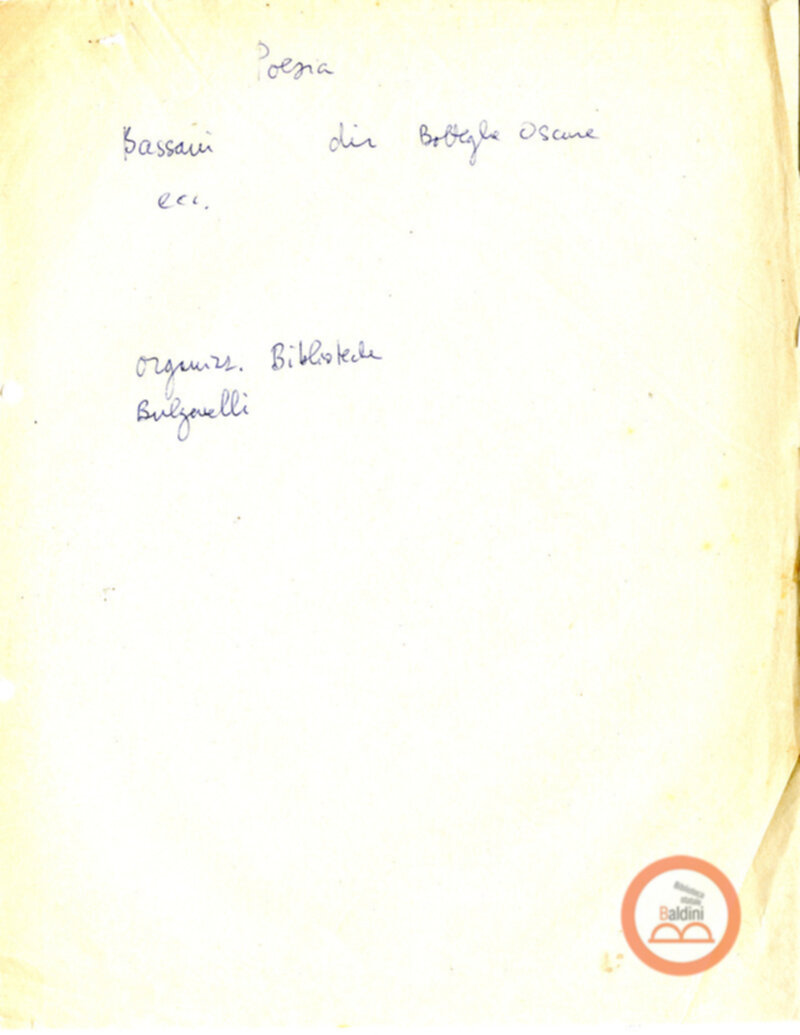 Poesia
Bassani dir Botteghe Oscure
ecc.
organizz. Biblioteche
Bulzarelli
Biblioteca
statale
Baldini